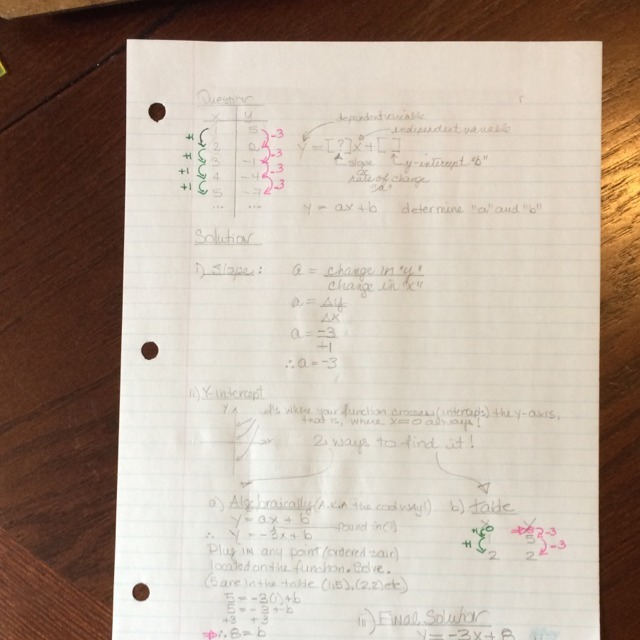 Question
x y
1 5
2 2
3 -1
4 -4
5 -7
... ...
+1 +1 +1 +1
-3 -3 -3 -3
dependent variable
independent variable
y = [?]x + [ ]
slope
y-intercept "b"
rate of change
"a"
y = ax + b determine "a" and "b"
Solution
i) Slope:
a = change in "y"
change in "x"
a = Δy
Δx
a = -3
+1
∴ a = -3
ii) Y-intercept
y
It's where your function crosses (intercepts) the y-axis,
that is, where x=0 always!
2 ways to find it!
a) Algebraically (A.k.a the cool way!)
y = ax + b
∴ y = -3x + b found in (i)
Plug in any point (ordered pair)
located on the function. Solve.
(5 are in the table (1,5), (2,2) etc)
5 = -3(1) + b
5 = -3 + b
+3 +3
∴ 8 = b
b) table
x y
+1 0 -3
+1 1 5 -3
2 2
iii) Final Solution
y = -3x + 8